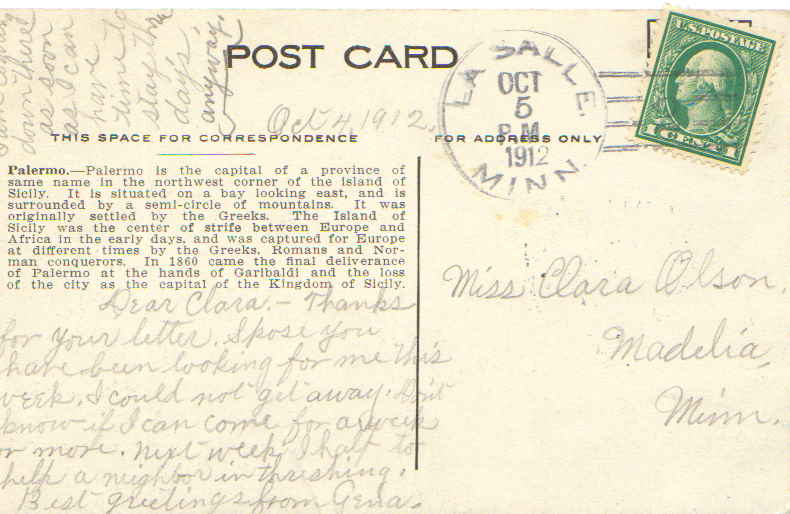 POST CARD
down there
as soon
as I can
have
time to
stay three
days,
anyway.
Oct 4, 1912.
THIS SPACE FOR CORRESPONDENCE
FOR ADDRESS ONLY
LA SALLE.
OCT
5
P.M.
1912
MINN.
U.S. POSTAGE
1 CENT 1
Palermo.—Palermo is the capital of a province of
same name in the northwest corner of the island of
Sicily. It is situated on a bay looking east, and is
surrounded by a semi-circle of mountains. It was
originally settled by the Greeks. The Island of
Sicily was the center of strife between Europe and
Africa in the early days, and was captured for Europe
at different times by the Greeks, Romans and Nor-
man conquerors. In 1860 came the final deliverance
of Palermo at the hands of Garibaldi and the loss
of the city as the capital of the Kingdom of Sicily.
Dear Clara.- Thanks
for your letter. Spose you
have been looking for me this
week. I could not get away. Don't
know if I can come for a week
or more. Next week I haf to
help a neighbor in threshing.
Best greetings from Gena.
Miss Clara Olson.
Madelia,
Minn.